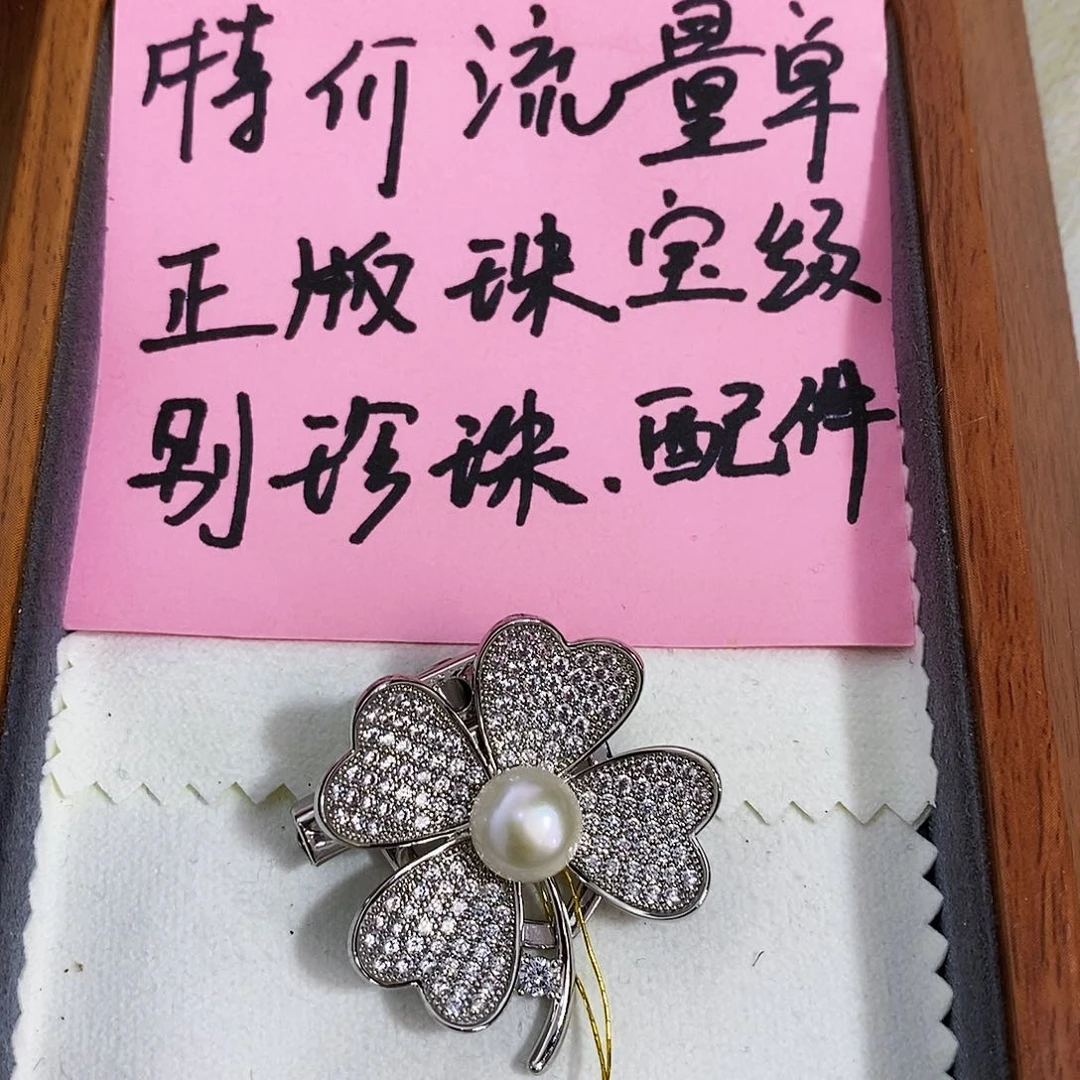 特价流量单
正版珠宝级
别珍珠.配件